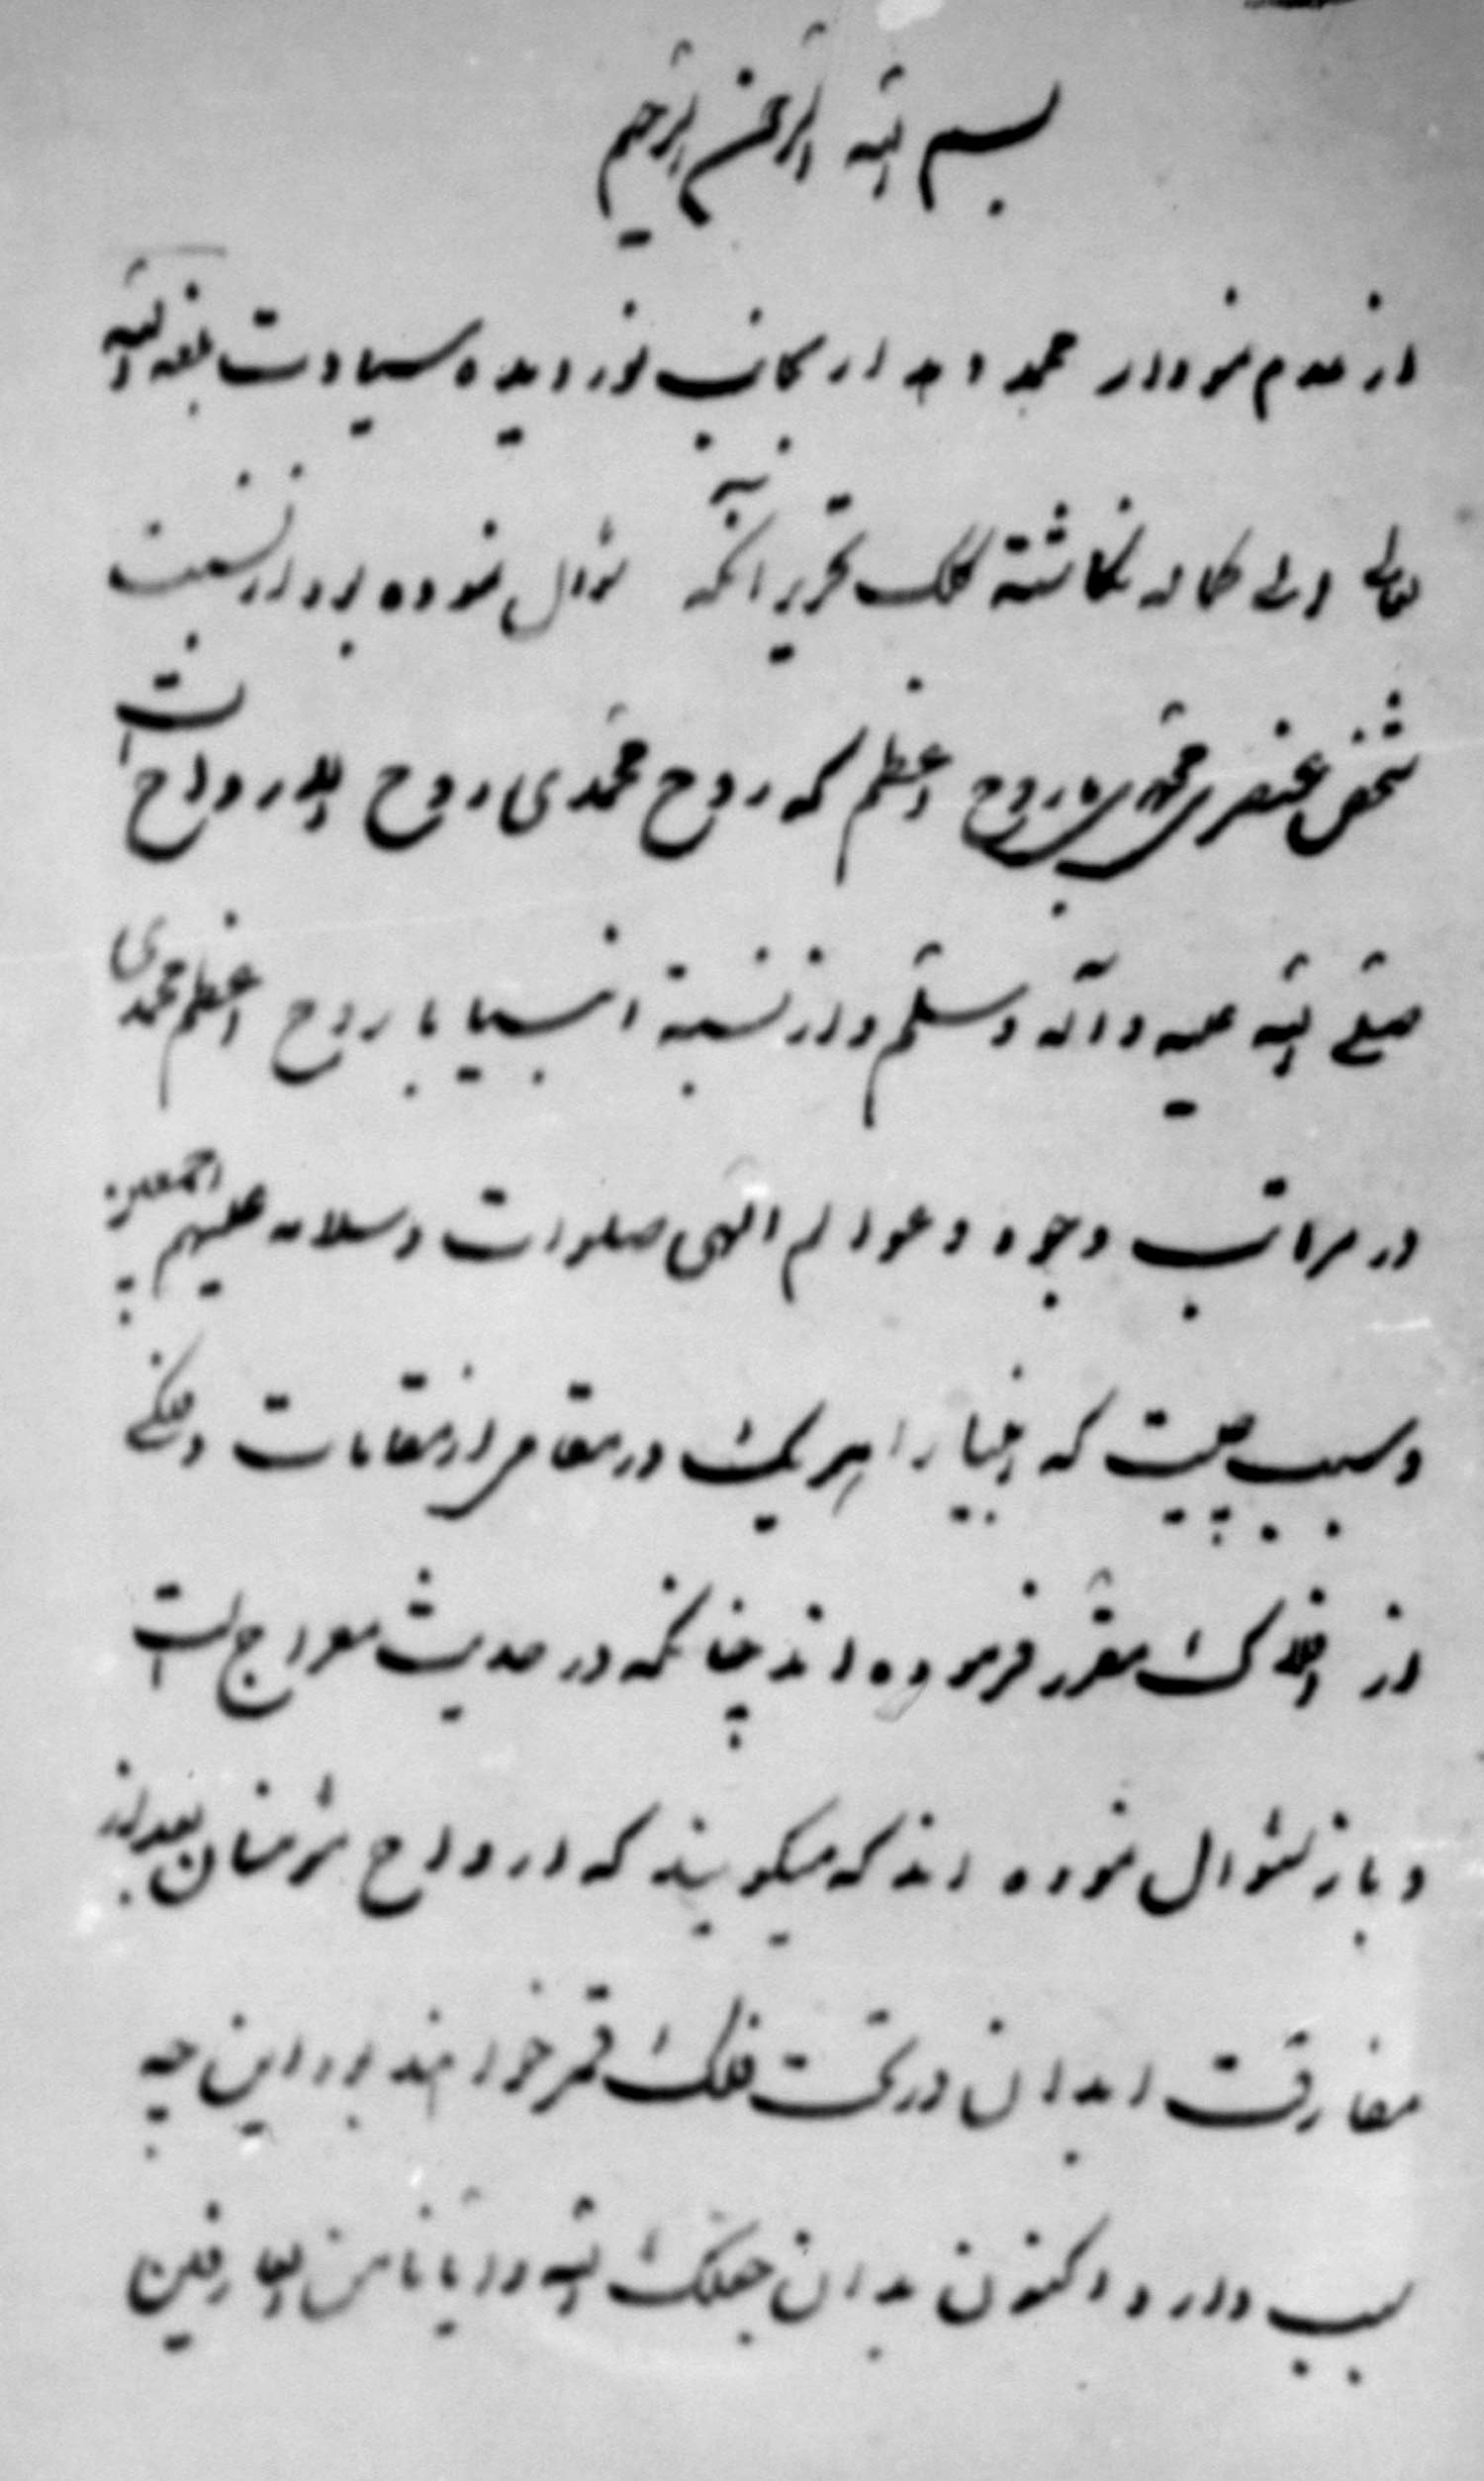 بسم الله الرحمن الرحیم
از عدم نمودار محمد دهدار بجانب نور دیده سیادت بلغه الله
تعالی الی کماله نگاشته کلک تحریر آنکه سؤال نموده بود از نسبت
شخص عنصری محمدی بروح اعظم که روح محمدی روح الارواح است
صلی الله علیه وآله وسلم واز نسبة انبیا با روح اعظم محمدی
در مراتب وجود و عوالم الهی صلوات وسلامه علیهم اجمعین
وسبب چیست که انبیا را هریک در مقامی از مقامات وفلکی
از افلاک مقرر فرموده اند چنانکه در حدیث معراج است
و باز سؤال نموده اند که میگویند که ارواح مؤمنان بعد از
مفارقت ابدان در تحت فلک قمر خواهند بود این چه
سبب دارد اکنون بدان جعلک الله وایانا من العارفین